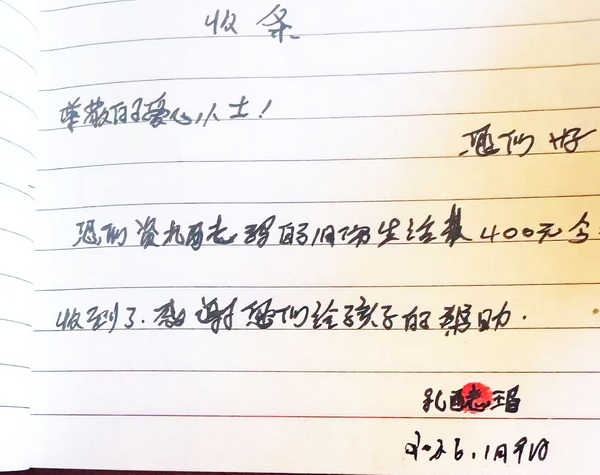 收条
尊敬的爱心人士！
您们好
您们资孔酉志瑶的1月份生活费400元今
收到了.感谢您们给孩子的帮助.
孔酉志瑶
1月9日